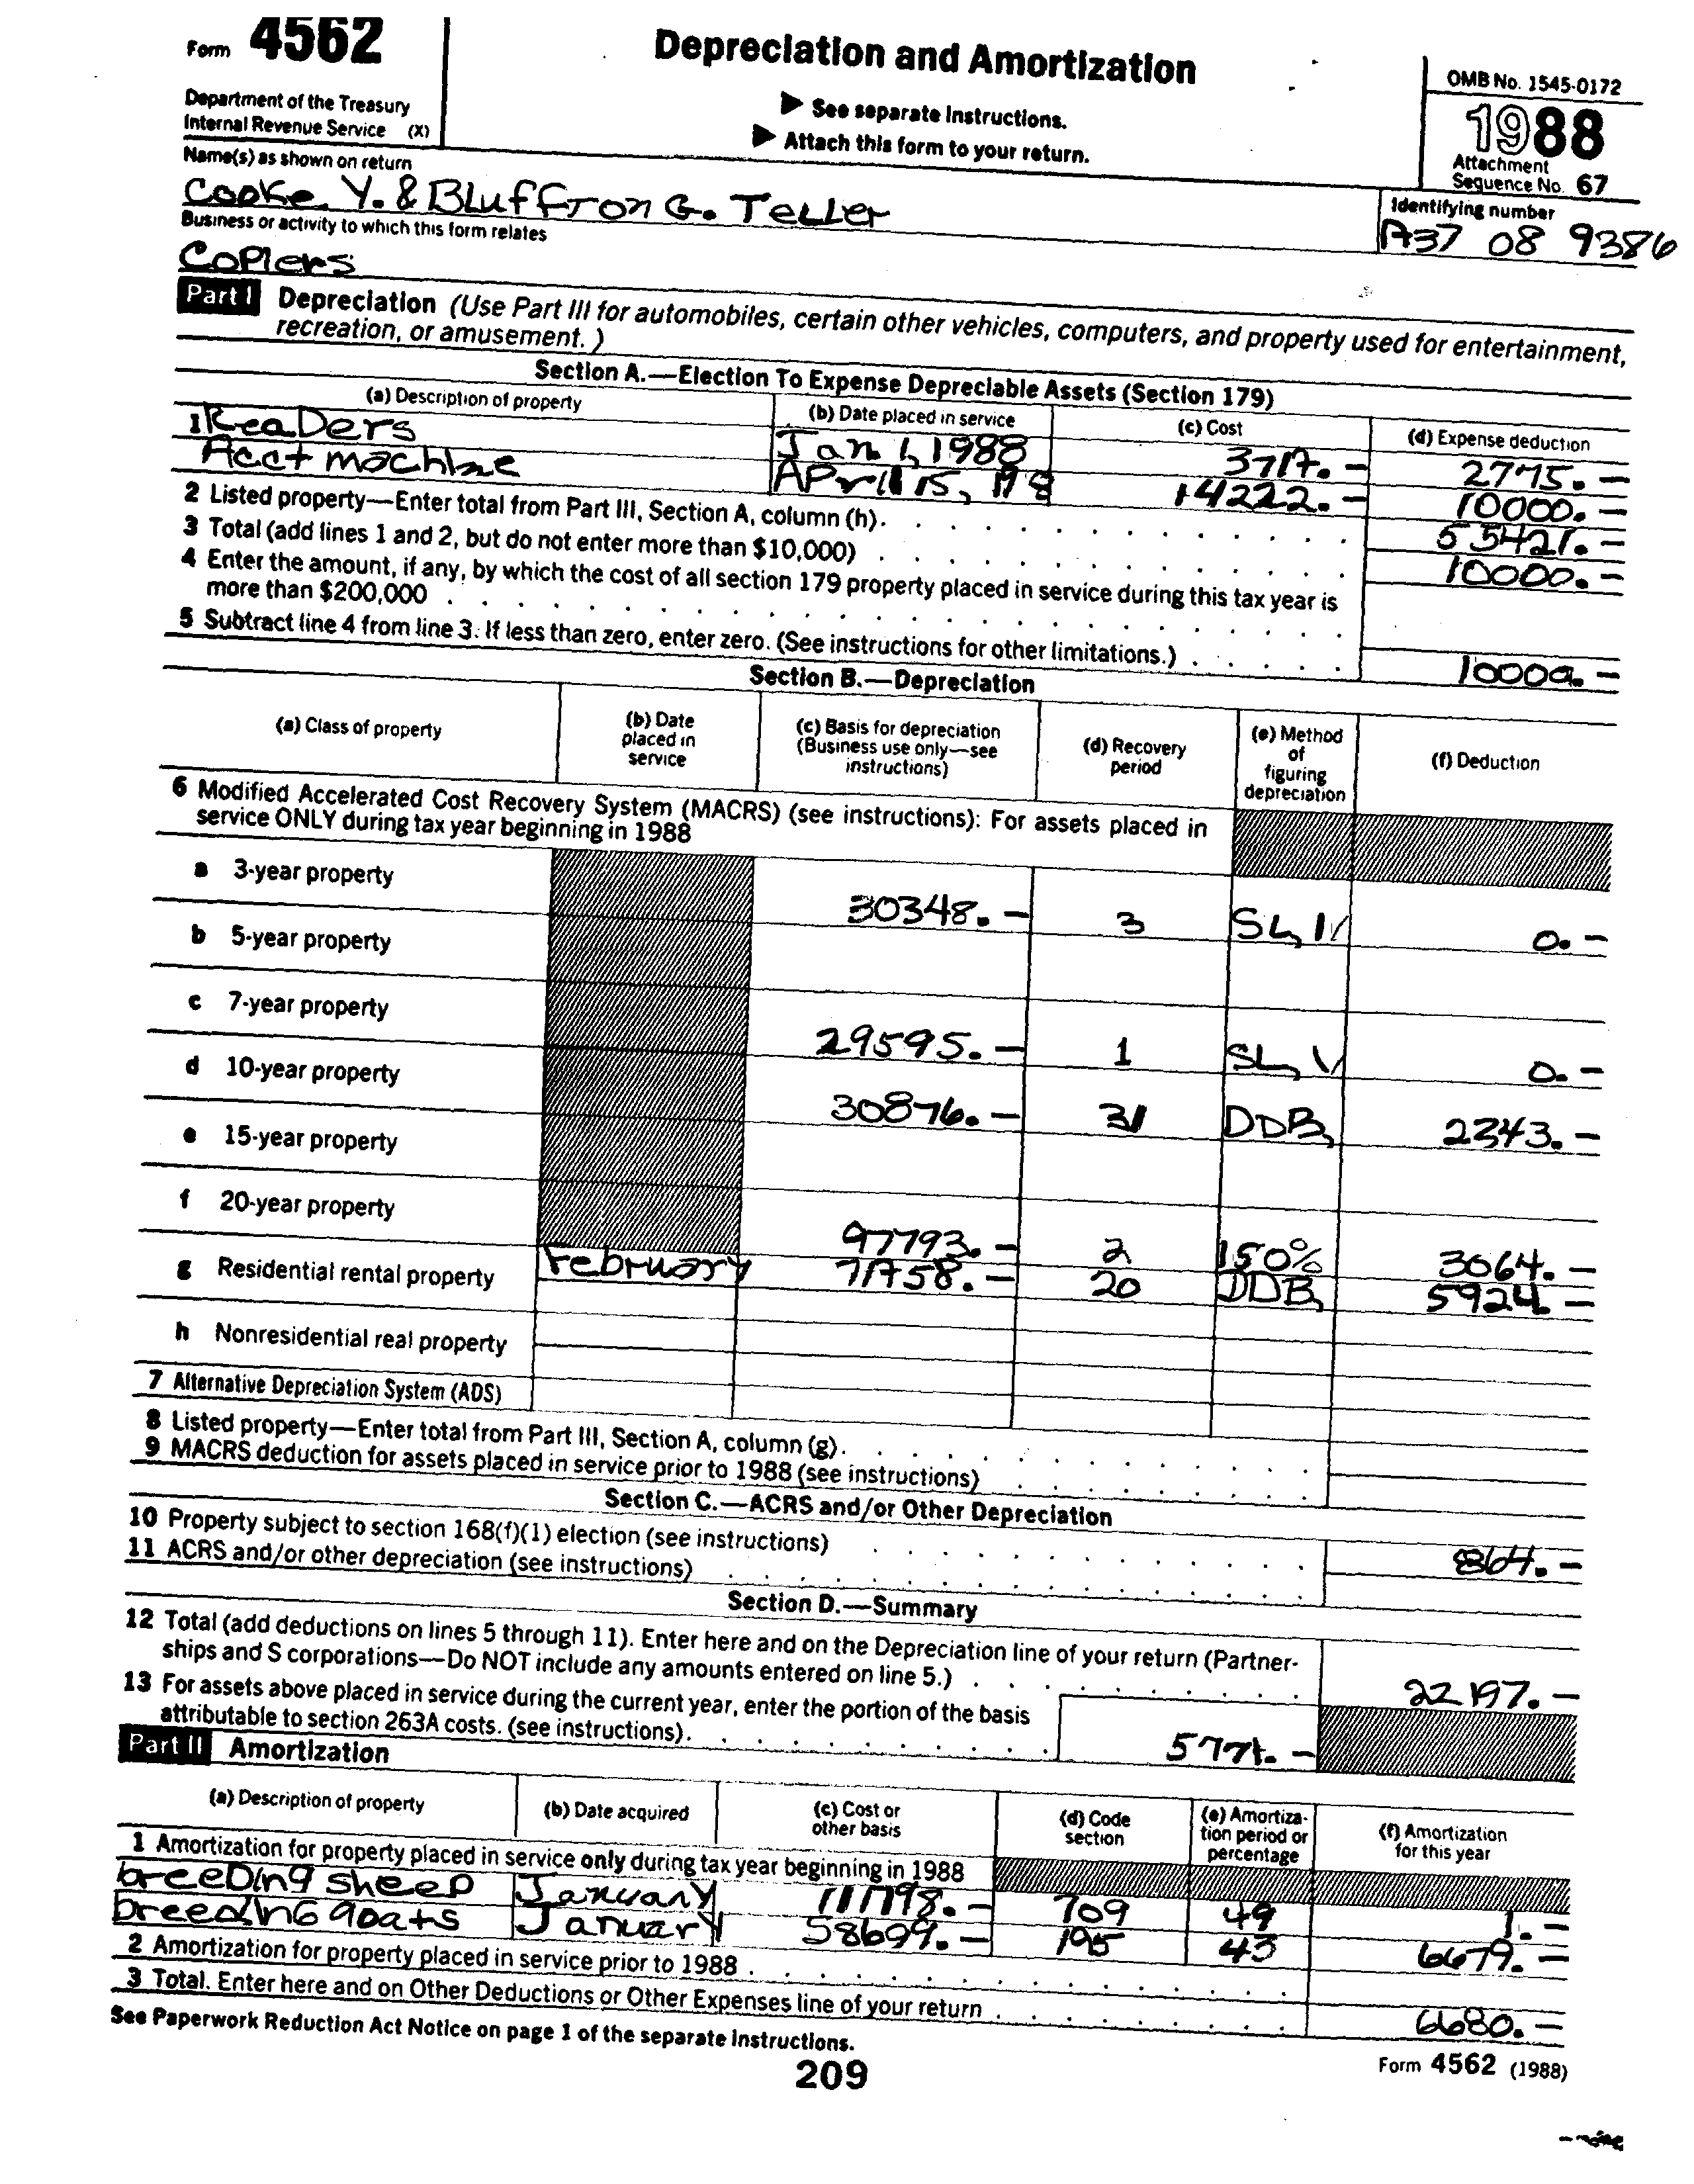 Form 4562
Depreciation and Amortization
OMB No. 1545-0172
Department of the Treasury
Internal Revenue Service (X)
▶ See separate Instructions.
▶ Attach this form to your return.
1988
Attachment
Sequence No. 67
Name(s) as shown on return
Cooke Y. & Bluffton G. Teller
Identifying number
A37 08 9386
Business or activity to which this form relates
Copiers
Part I Depreciation (Use Part III for automobiles, certain other vehicles, computers, and property used for entertainment,
recreation, or amusement.)
Section A.—Election To Expense Depreciable Assets (Section 179)
(a) Description of property (b) Date placed in service (c) Cost (d) Expense deduction
1 Readers Jan 1, 1988 3717.- 2775.-
Acct machine April 15, 14222.- 10000.-
2 Listed property—Enter total from Part III, Section A, column (h). 55421.-
3 Total (add lines 1 and 2, but do not enter more than $10,000) 10000.-
4 Enter the amount, if any, by which the cost of all section 179 property placed in service during this tax year is
more than $200,000
5 Subtract line 4 from line 3. If less than zero, enter zero. (See instructions for other limitations.) 10000.-
Section B.—Depreciation
(a) Class of property (b) Date placed in service (c) Basis for depreciation (Business use only—see instructions) (d) Recovery period (e) Method of figuring depreciation (f) Deduction
6 Modified Accelerated Cost Recovery System (MACRS) (see instructions): For assets placed in
service ONLY during tax year beginning in 1988
a 3-year property 30348.- 3 SL, 0.-
b 5-year property
c 7-year property 29595.- 1 SL, 0.-
d 10-year property 30876.- 31 DDB, 2343.-
e 15-year property
f 20-year property 97793.- 2 150% 3064.-
g Residential rental property February 71758.- 20 DDB, 5924.-
h Nonresidential real property
7 Alternative Depreciation System (ADS)
8 Listed property—Enter total from Part III, Section A, column (g).
9 MACRS deduction for assets placed in service prior to 1988 (see instructions)
Section C.—ACRS and/or Other Depreciation
10 Property subject to section 168(f)(1) election (see instructions)
11 ACRS and/or other depreciation (see instructions) 864.-
Section D.—Summary
12 Total (add deductions on lines 5 through 11). Enter here and on the Depreciation line of your return (Partner-
ships and S corporations—Do NOT include any amounts entered on line 5.) 22197.-
13 For assets above placed in service during the current year, enter the portion of the basis
attributable to section 263A costs. (see instructions). 5771.-
Part II Amortization
(a) Description of property (b) Date acquired (c) Cost or other basis (d) Code section (e) Amortiza-tion period or percentage (f) Amortization for this year
1 Amortization for property placed in service only during tax year beginning in 1988
breeding sheep January 111798.- 709 49 1.-
breeding goats January 58699.- 195 43 6679.-
2 Amortization for property placed in service prior to 1988
3 Total. Enter here and on Other Deductions or Other Expenses line of your return 6680.-
See Paperwork Reduction Act Notice on page 1 of the separate instructions.
209
Form 4562 (1988)